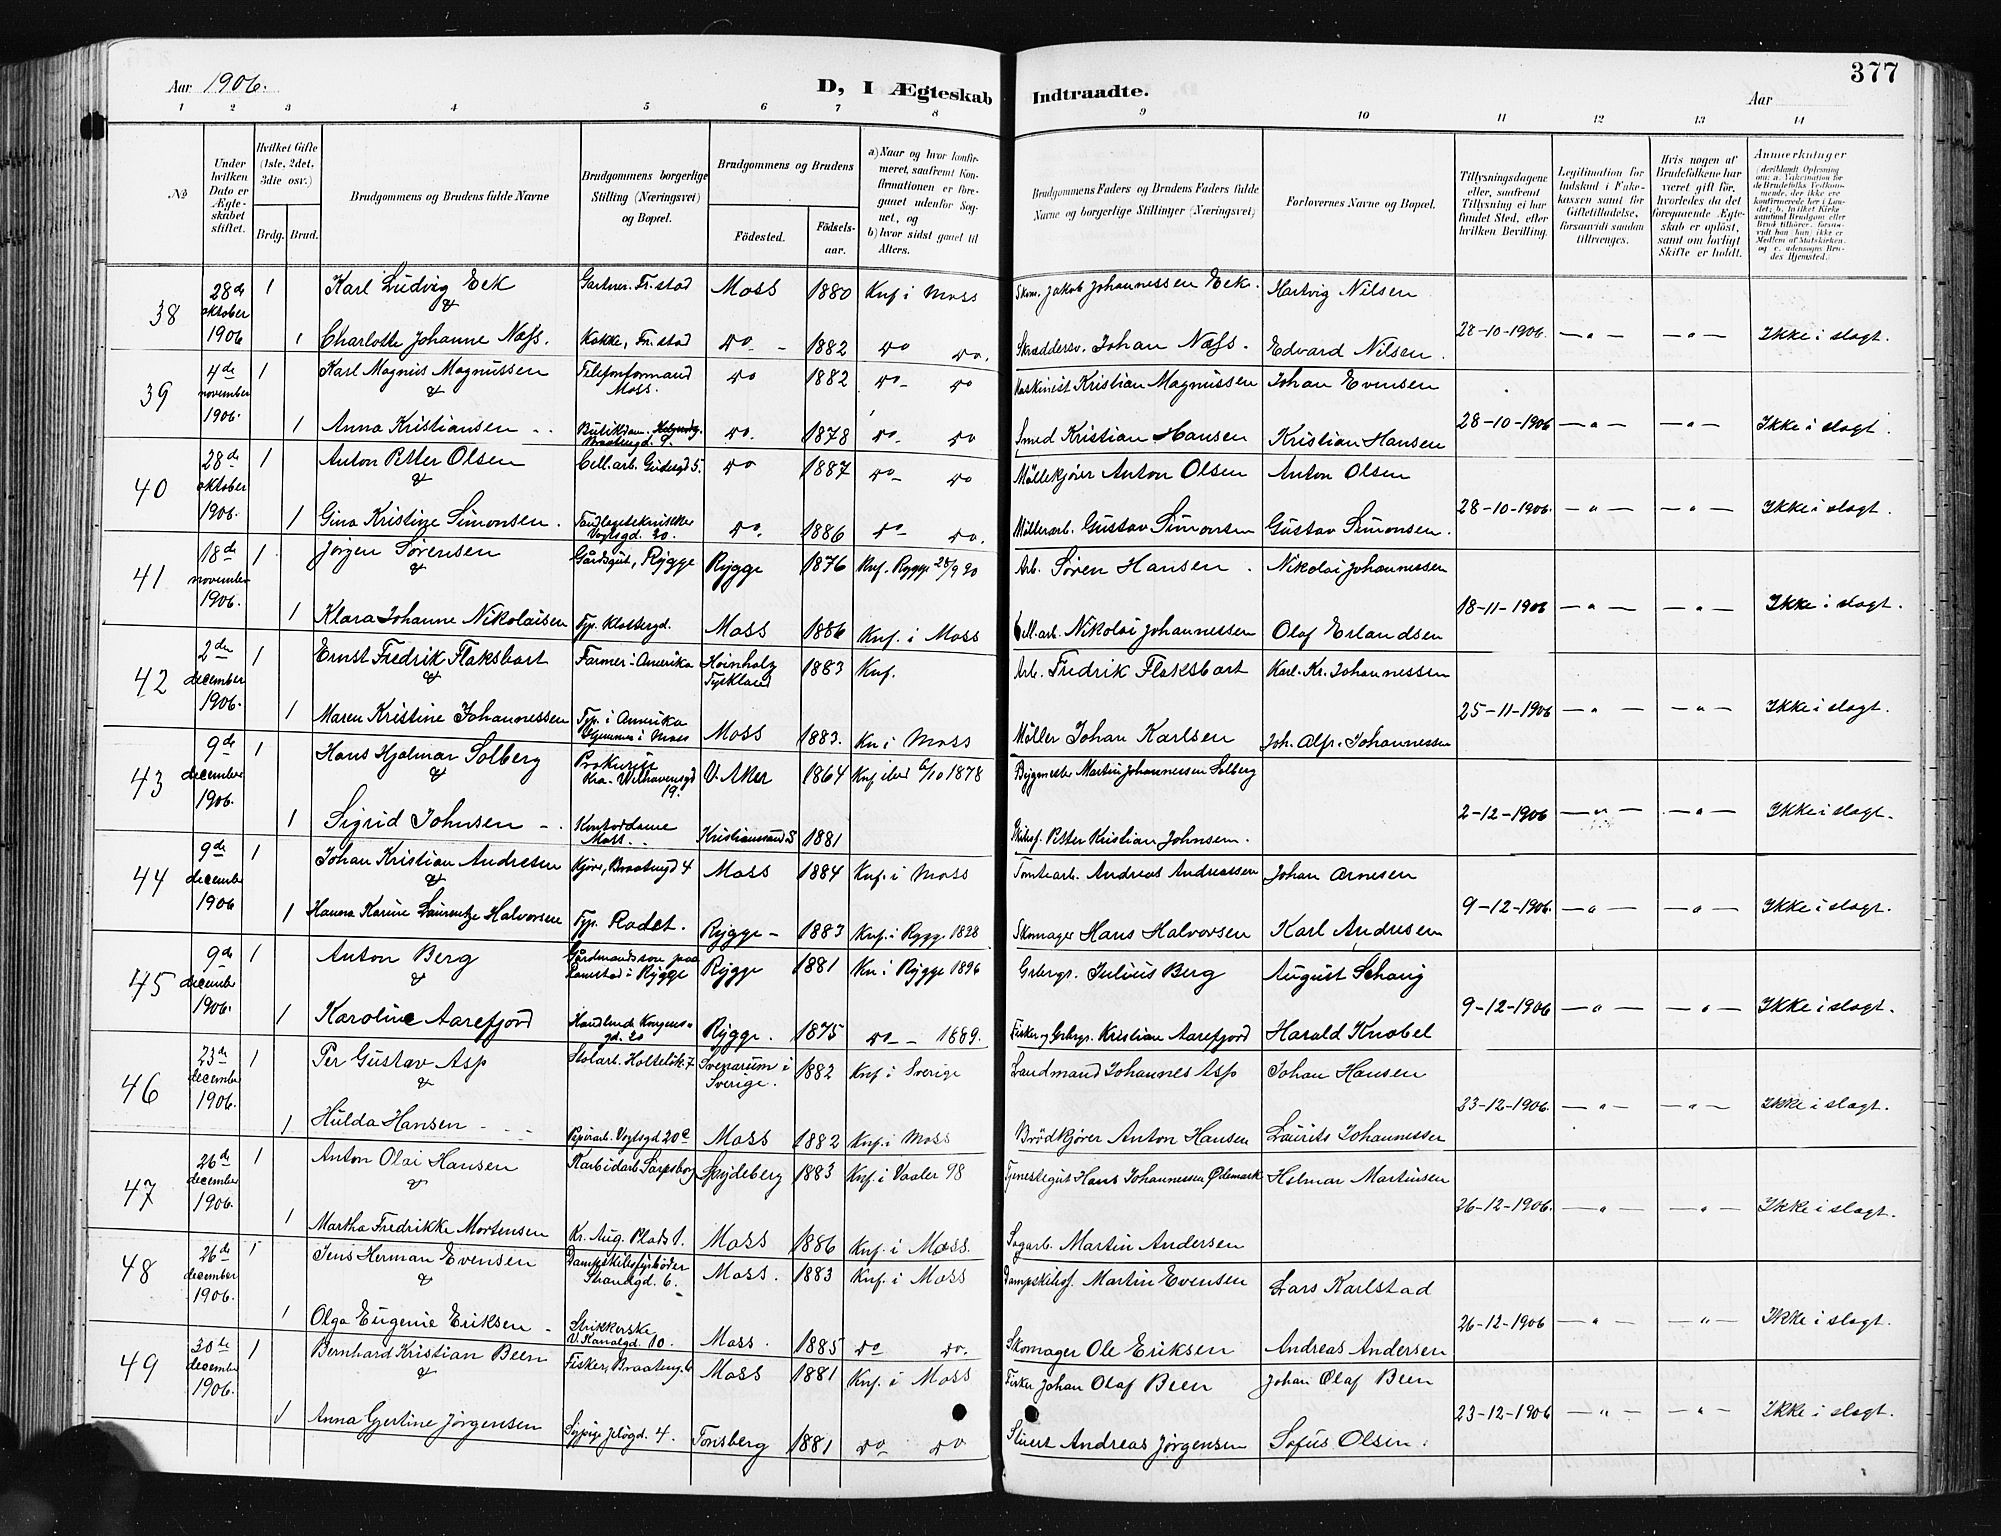 Aar 1906.
D, I Ægteskab Indtraadte.
Aar
377
1 2 3 4 5 6 7 8 9 10 11 12 13 14
No
Under hvilken Dato er Ægteskabet stiftet.
Hvilket Gifte (1ste, 2det, 3die osv.)
Brdg. Brud.
Brudgommens og Brudens fulde Navne
Brudgommens borgerlige Stilling (Næringsvei) og Bopæl.
Brudgommens og Brudens
Fødested. Fødselsaar.
a) Naar og hvor konfirmeret, saafremt Konfirmationen er foregaaet udenfor Sognet, og
b) hvor sidst gaaet til Alters.
Brudgommens Faders og Brudens Faders fulde Navne og borgerlige Stillinger (Næringsvei)
Forlovernes Navne og Bopæl.
Tillysningsdagene eller, saafremt Tillysning ei har fundet Sted, efter hvilken Bevilling.
Legitimation for Indskud i Fakekassen samt for Giftetilladelse, forsaavidt saadan tiltrænges.
Hvis nogen af Brudefolkene har været gift før, hvorledes da det foregaaende Ægteskab er opløst, samt om lovligt Skifte er holdt.
Anmerkninger
38 28de oktober 1906 1 Karl Ludvig Eek Gartner. Fr.stad Moss 1880 Knf. i Moss Skom. Jakob Johannessen Eek. Hartvig Nilsen
&
1 Charlotte Johanne Næss. Kokke, Fr.stad do - 1882 do do. Skræddersv. Johan Næss. Edvard Nilsen. 28-10-1906. — " — — " — Ikke i slægt.
39 4de november 1906. 1 Karl Magnus Magnussen Telefonformand Moss. do 1882 do - do Maskinist Kristian Magnussen Johan Evensen
&
1 Anna Kristiansen Butikdam. Braatengd. 9. do. 1878 do - do Smed Kristian Hansen Kristian Hansen 28-10-1906 — " — — " — Ikke i slægt.
40 28de oktober 1906. 1 Anton Petter Olsen Cell.arb. Gudesgd 5. do 1887 do - do Møllekjører Anton Olsen Anton Olsen
&
1 Gina Kristine Simonsen. Vogtsgd. 20. do. 1886 do - do. Møllerarb. Gustav Simonsen Gustav Simonsen. 28-10-1906. — " — — " — Ikke i slægt.
41 18de november 1906. 1 Jørgen Sørensen Gårdsgut, Rygge Rygge 1876 Knf. Rygge 28/9 90 Arb. Søren Hansen. Nikolai Johannessen
&
1 Klara Johanne Nikolaisen Typ. Klostergd. Moss 1886 Knf. i Moss Cell.arb. Nikolai Johannessen Olaf Erlandsen 18-11-1906 — " — — " — Ikke i slægt.
42 2den december 1906. 1 Ernst Fredrik Flaksbart Farmer i Amerika Hoinholz Tyskland 1883 Knf. Arb. Fredrik Flaksbart Karl. Kr. Johannessen
&
1 Maren Kristine Johannessen Typ. i Amerika Hjemmes i Moss Moss 1883. Kn i Moss Møller Johan Karlsen Joh. Alfr. Johannessen 25-11-1906 — " — — " — Ikke i slægt.
43 9de december 1906. 1 Hans Hjalmar Solberg Prokurist Kra. Welhavensgd 19. V. Aker 1864 Knf ibid 6/10 1878 Bygmester Martin Johannessen Solberg
&
1 Sigrid Johnsen - . Kontordame Moss. Kristianssand S 1881 Skibsf. Petter Kristian Johnsen. 2-12-1906 — " — — " — Ikke i slægt.
44 9de december 1906 1 Johan Kristian Andresen Kjører, Braatengd 4 Moss 1884 Knf. i Moss Tomtearb. Andreas Andreassen Johan Arnesen
&
1 Hanna Karine Laurentze Halvorsen Typ. Rodet. Rygge - 1883 Knf. i Rygg 1828 Skomager Hans Halvorsen Karl Andresen 9-12-1906. — " — — " — Ikke i slægt.
45 9de december 1906. 1 Anton Berg Gårdmandssøn paa Ramstad i Rygge Rygge 1881 Kn. i Rygge 1896 Grbergr. Julius Berg August Schanj
&
1 Karoline Aarefjord Handlende Kongensgd. 20 Rygge. 1875 do - 1889. Fisker og Grbergr. Kristian Aarefjord Harald Knobel 9-12-1906 — " — — " — Ikke i slægt.
46 23de december 1906. 1 Per Gustav Asp Stolarb. Holteløk. 7 Svenarum i Sverige. 1882 Knf. i Sverige Landmand Johannes Asp Johan Hansen
&
1 Hulda Hansen Papirarb. Vogtsgd 20c Moss 1882 Knf. i Moss Brødkjører Anton Hansen Laurits Johannessen 23-12-1906. — " — — " — Ikke i slægt.
47 26de december 1906. 1 Anton Olai Hansen Karbidarb. Sarpsborg Spydeberg 1883 Knf. i Vaaler 98 Tjenestegut Hans Johannessen Ødemark Helmar Martinsen
&
1 Martha Fredrikke Mortensen Kr. Aug. Plads 1. Moss 1886 Knf. i Moss. Sagarb. Martin Andersen 26-12-1906. — " — — " — Ikke i slægt.
48 26de december 1906. 1 Jens Herman Evensen Dampskibsfyrbøder Strandgd. 6. Moss. 1883 Knf. i Moss Dampskibsf. Martin Evensen Lars Karlstad
&
1 Olga Eugenie Eriksen Strikkerske V. Kanalgd. 10. Moss. 1885 do do. Skomager Ole Eriksen Andreas Andersen 26-12-1906 — " — — " — Ikke i slægt.
49 30te december 1906. 1 Bernhard Kristian Been Fisker, Braateng. 6 Moss 1881 Knf. i Moss Fisker Johan Olaf Been Johan Olaf Been
&
1 Anna Gjertine Jørgensen Sypige Jeløgd. 4. Tønsberg 1881 do do Stuert Andreas Jørgensen Sofus Olsen. 23-12-1906 — " — — " — Ikke i slægt.